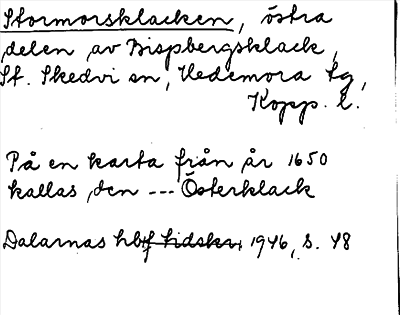 Stormorsklacken, östra
delen av Bispbergsklack,
St. Skedvi sn, Hedemora tg,
Kopp. l.
På en karta från år 1650
kallas den --- Österklack
Dalarnas hbf tidskr, 1946, s. 48